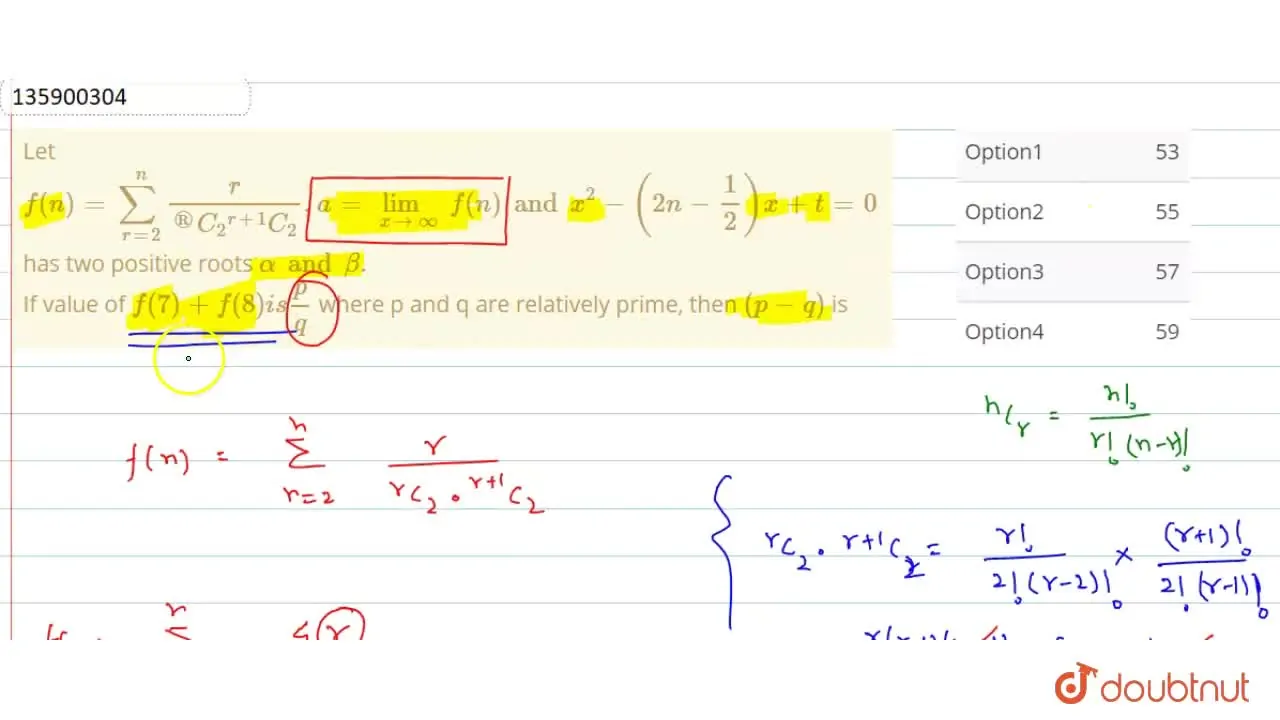 135900304
Let
f(n) = \sum_{r=2}^{n} \frac{r}{^{®}C_2 ^{r+1}C_2}, a = \lim_{x→∞} f(n) and x^2 − (2n − \frac{1}{2}) x + t = 0
has two positive roots α and β.
If value of f(7) + f(8) is \frac{p}{q} where p and q are relatively prime, then (p − q) is
Option1 53
Option2 55
Option3 57
Option4 59
^nC_r = \frac{n!}{r! (n-r)!}
f(n) = \sum_{r=2}^{n} \frac{r}{^rC_2 . ^{r+1}C_2}
^rC_2 . ^{r+1}C_2 = \frac{r!}{2! (r-2)!} × \frac{(r+1)!}{2! (r-1)!}
doubtnut